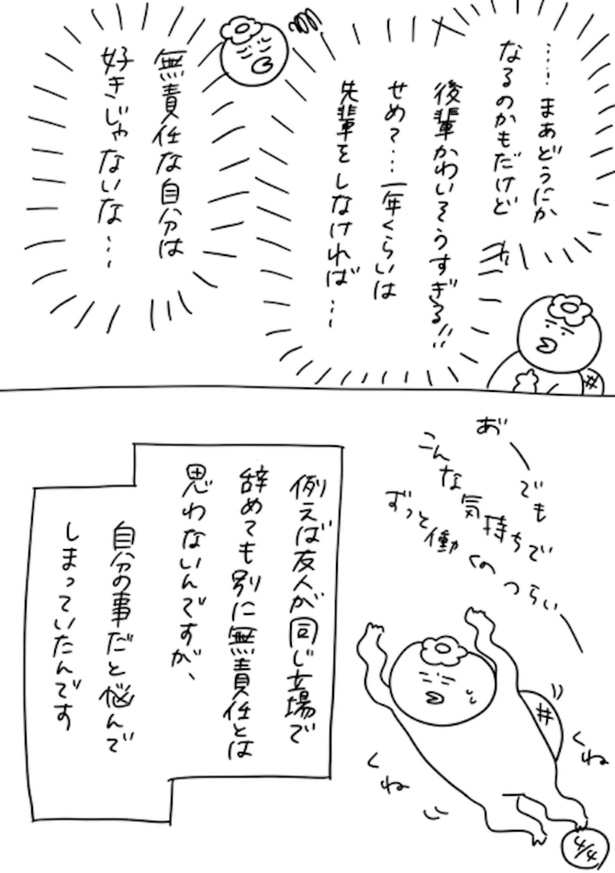 ……まあどうにか
なるのかもだけど
後輩かわいそうすぎる!!
せめて…一年くらいは
先輩をしなければ…
無責任な自分は
好きじゃないな…
あ゛ー
でも
こんな気持ちで
ずっと働くの
つらいー
くね
くね
例えば友人が同じ立場で
辞めても別に無責任とは
思わないんですが、
自分の事だと悩んで
しまっていたんです
4/4